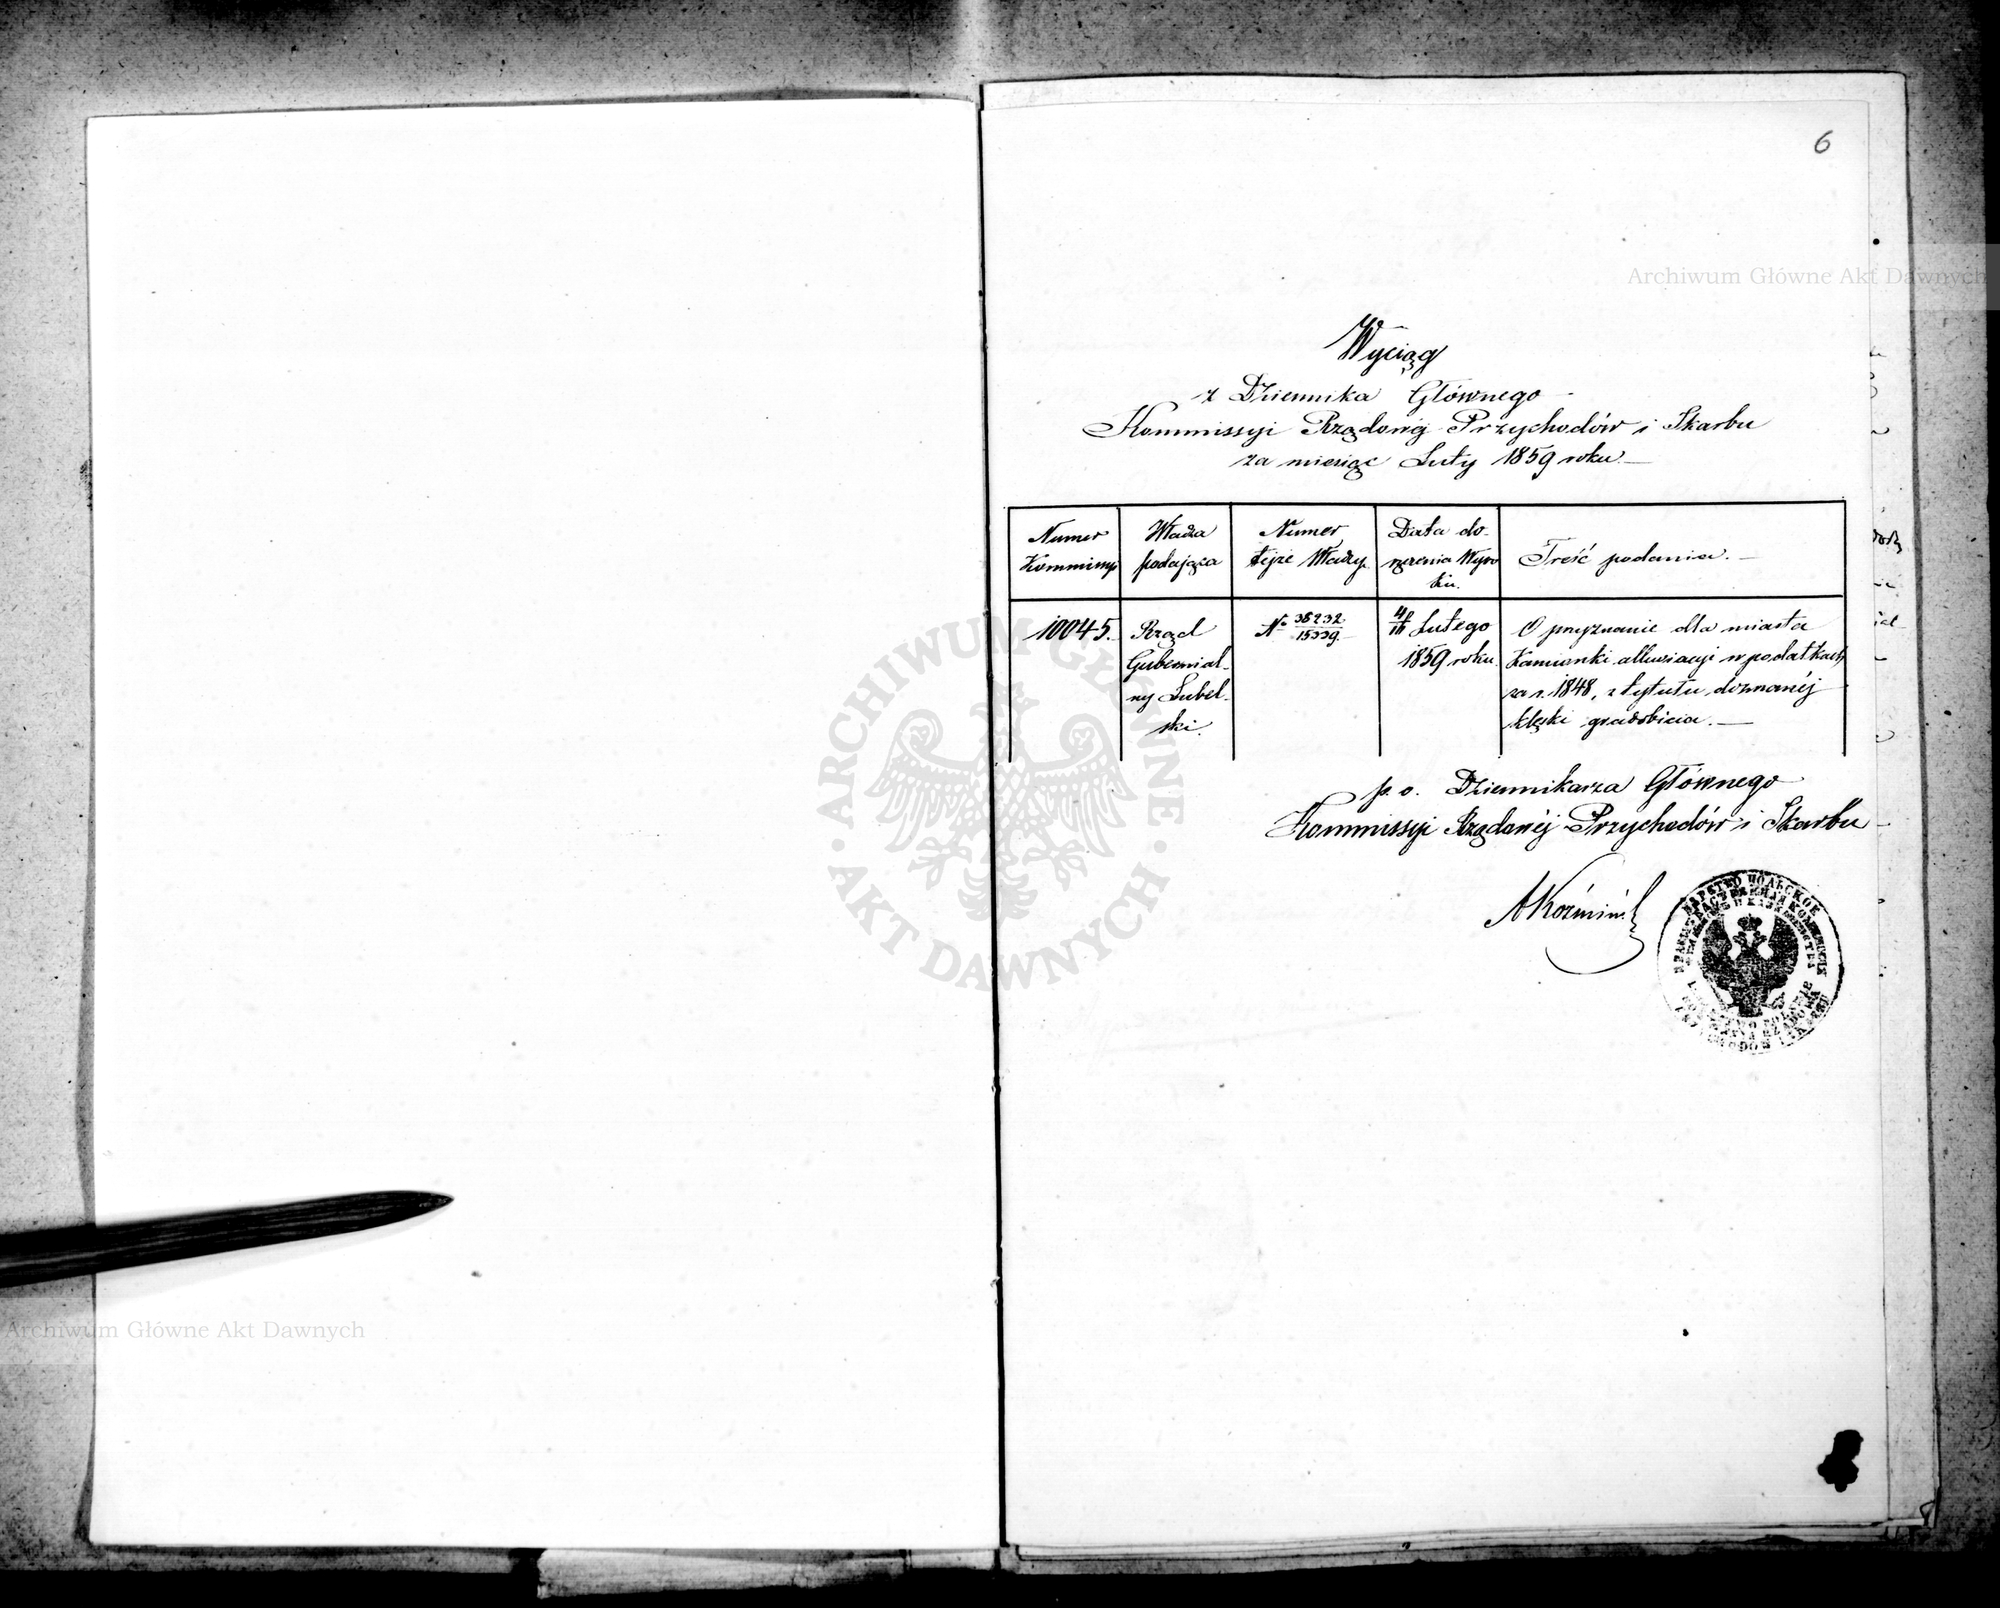 6
Archiwum Główne Akt Dawnych
Wyciąg
z Dziennika Głównego
Kommissyi Rządowéj Przychodów i Skarbu
za miesiąc Luty 1859 roku.
Numer Kommissyi
Władza podająca
Numer tejże Władzy
Data do-
ręczenia
Treść podania.
10045.
Rząd
Gubernial-
ny Lubel-
ski.
№ 38232/15339
4/16 Lutego
1859 roku
O przyznanie dla miasta
Kamionki allewiacyi w podatkach
za r. 1848, z tytułu doznanéj
klęski gradobicia.
p. o. Dziennikarza Głównego
Kommissyi Rządowéj Przychodów i Skarbu
ЦАРСТВО ПОЛЬСКОЕ
ARCHIWUM GŁÓWNE AKT DAWNYCH
Archiwum Główne Akt Dawnych